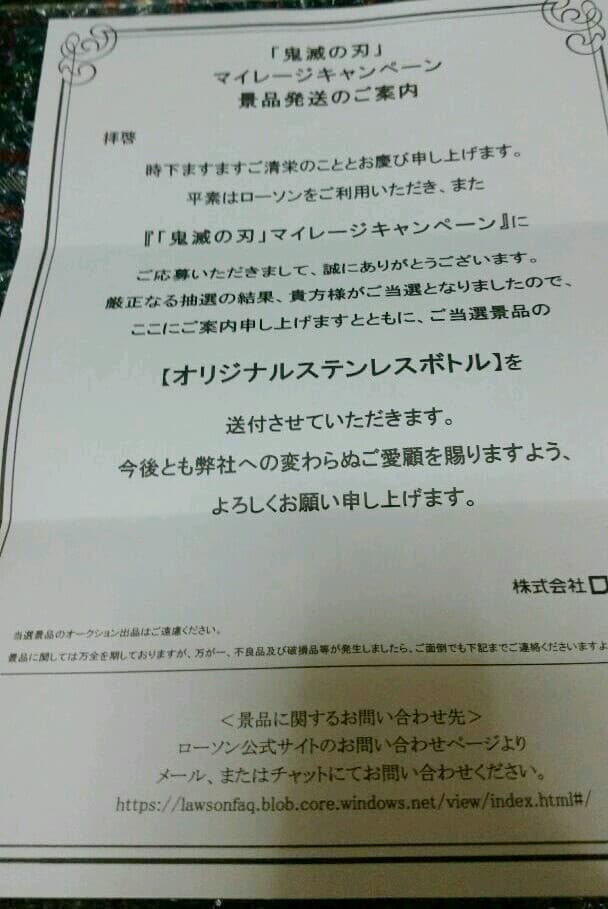 「鬼滅の刃」
マイレージキャンペーン
景品発送のご案内
拝啓
時下ますますご清栄のこととお慶び申し上げます。
平素はローソンをご利用いただき、また
『「鬼滅の刃」マイレージキャンペーン』に
ご応募いただきまして、誠にありがとうございます。
厳正なる抽選の結果、貴方様がご当選となりましたので、
ここにご案内申し上げますとともに、ご当選景品の
【オリジナルステンレスボトル】を
送付させていただきます。
今後とも弊社への変わらぬご愛顧を賜りますよう、
よろしくお願い申し上げます。
株式会社ロ
当選景品のオークション出品はご遠慮ください。
景品に関しては万全を期しておりますが、万が一、不良品及び破損品等が発生しましたら、ご面倒でも下記までご連絡くださいますよ
＜景品に関するお問い合わせ先＞
ローソン公式サイトのお問い合わせページより
メール、またはチャットにてお問い合わせください。
https://lawsonfaq.blob.core.windows.net/view/index.html#/